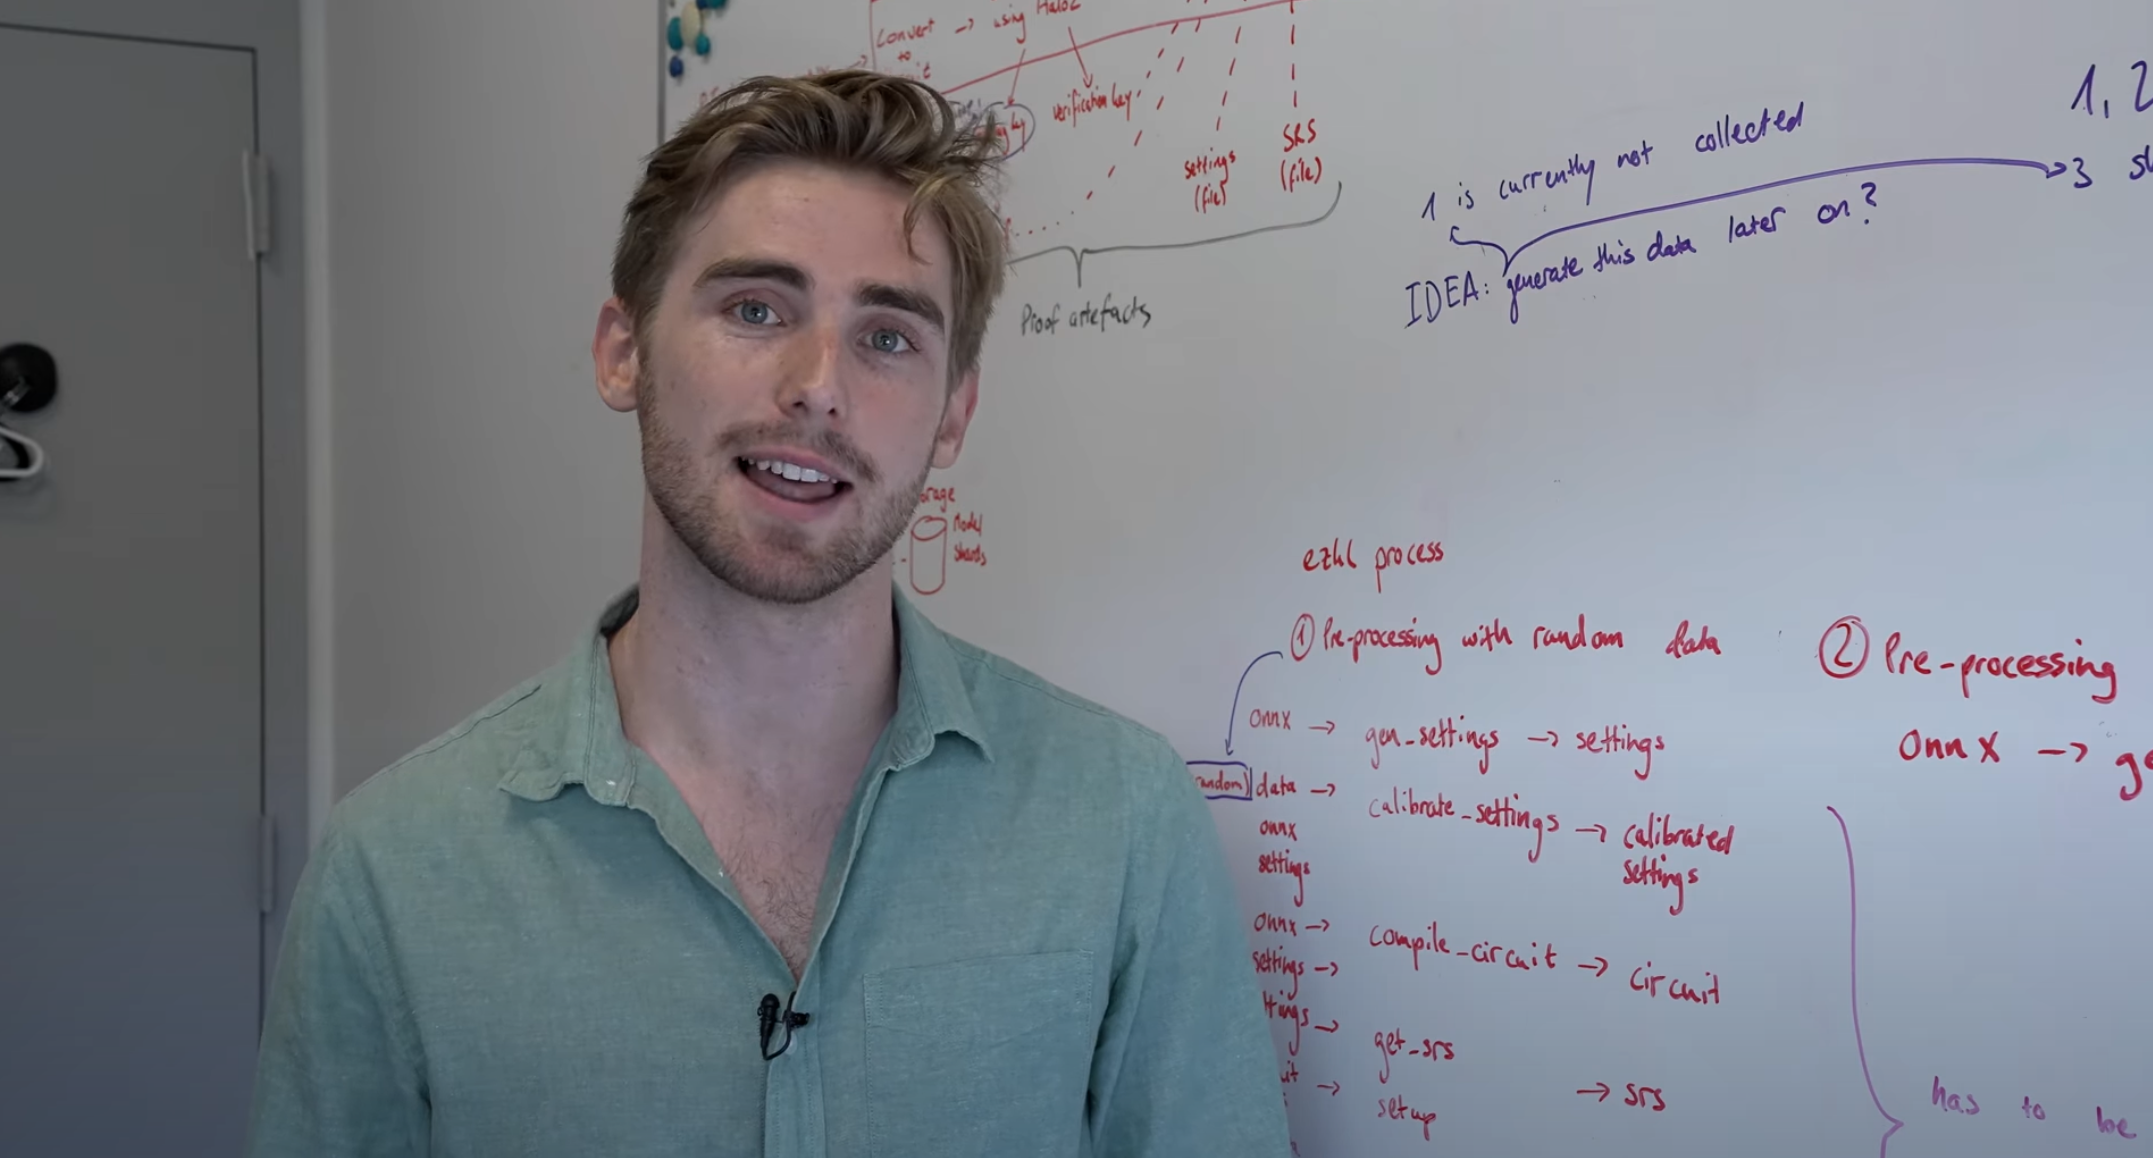 Convert → using Halo2
to
verification key
settings
(file)
SRS
(file)
Proof artefacts
1 is currently not collected
IDEA: generate this data later on?
1, 2
3
Model
shards
ezkl process
① Pre-processing with random data
onnx → gen_settings → settings
data → calibrate_settings → calibrated
settings
onnx
settings
onnx → compile_circuit → circuit
settings →
→ get_srs
→ setup → srs
② Pre-processing
onnx →
has to be